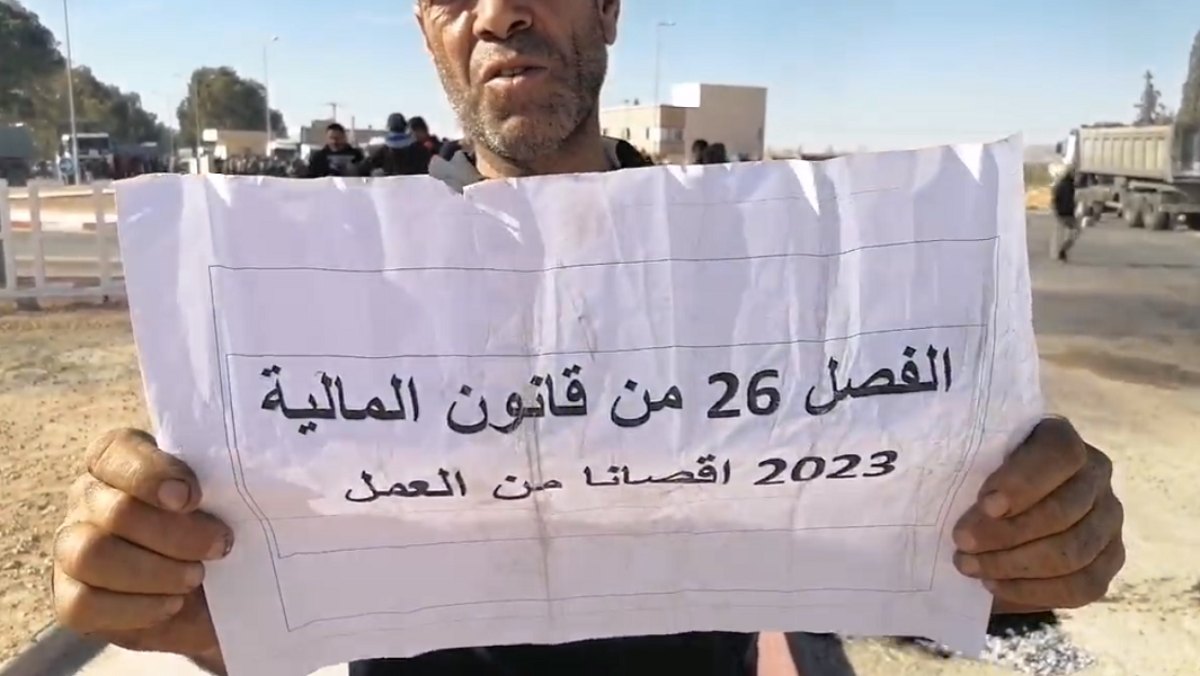 الفصل 26 من قانون المالية
2023 اقصانا من العمل